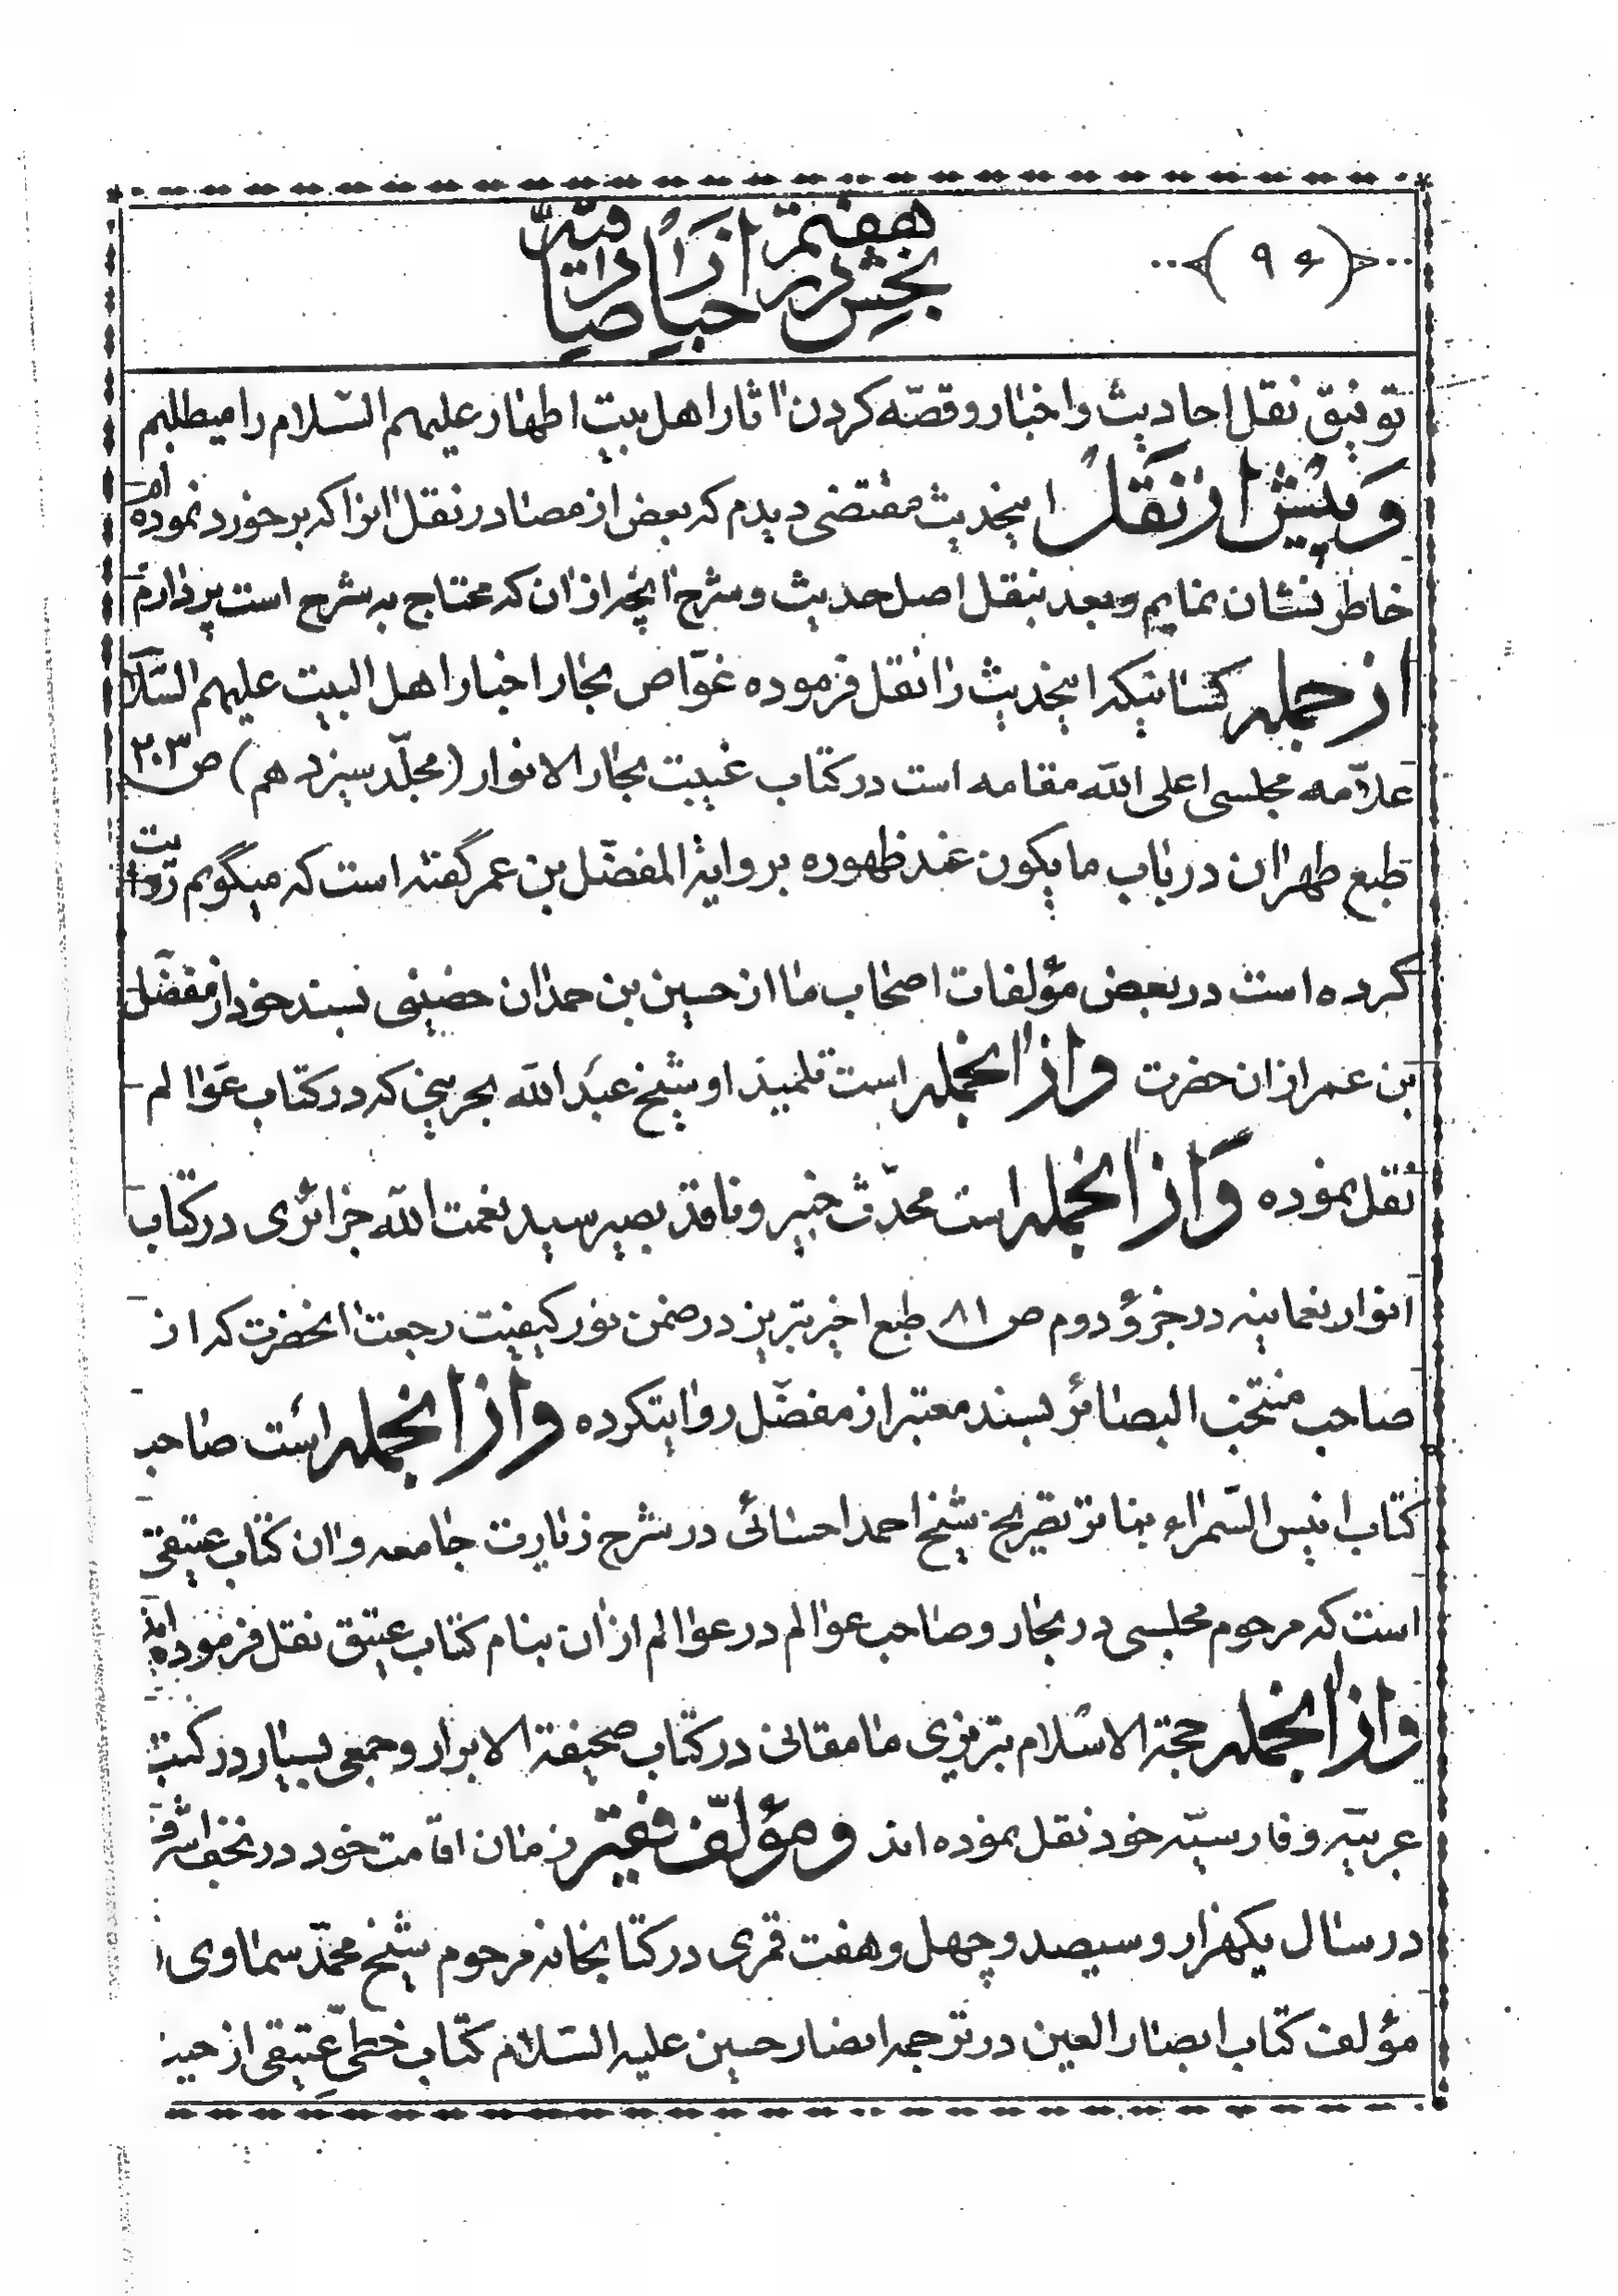 (۹۶)
بخش هفتم در اخبار صادقیه
توفیق نقل احادیث و اخبار و قصّه کردن اثار اهل بیت اطهار علیهم السّلام را میطلبم
وَپیش از نَقل اینحدیث مقتضی دیدم که بعض از مصادر نقل انرا که برخورد نموده‌ام
خاطر نشان نمایم و بعد بنقل اصل حدیث و شرح انچه از ان که محتاج به شرح است پردازم
از جمله کسانیکه اینحدیث را نقل فرموده غوّاص بحار اخبار اهل البیت علیهم السّلام
علاّمه مجلسی اعلی اللّه مقامه است در کتاب غیبت بحار الانوار (مجلّد سیزدهم) ص ۲۰۳
طبع طهران در باب ما یکون عند ظهوره بروایة المفضّل بن عمر گفته است که میگویم روایت
کرده است در بعض مؤلفات اصحاب ما از حسین بن حمدان حضینی بسند خود از مفضّل
بن عمر از ان حضرت وازانجمله است تلمیذ او شیخ عبد اللّه بحرینی که در کتاب عوالم
نقل نموده وَازانجمله است محدّث خبیر و ناقد بصیر سید نعمت اللّه جزائری در کتاب
انوار نعمانیه در جزؤ دوم ص ۸۱ طبع اخیر تبریز در ضمن نور کیفیت رجعت انحضرت که از
صاحب منتخب البصائر بسند معتبر از مفضّل روایتکرده وازانجمله است صاحب
کتاب انیس السّمراء بنا بر تصریح شیخ احمد احسائی در شرح زیارت جامعه و ان کتاب عتیقی
است که مرحوم مجلسی در بحار و صاحب عوالم در عوالم از ان بنام کتاب عتیق نقل فرموده‌اند
وازانجمله حجة الاسلام تبریزی مامقانی در کتاب صحیفة الابرار و جمعی بسیار در کتب
عربیّه و فارسیّه خود نقل نموده اند و مؤلّف فقیر زمان اقامت خود در نجف اشرف
در سال یکهزار و سیصد و چهل و هفت قمری در کتابخانه مرحوم شیخ محمّد سماوی
مؤلف کتاب ابصار العین در ترجمه انصار حسین علیه السّلام کتاب خطّی عتیقی از